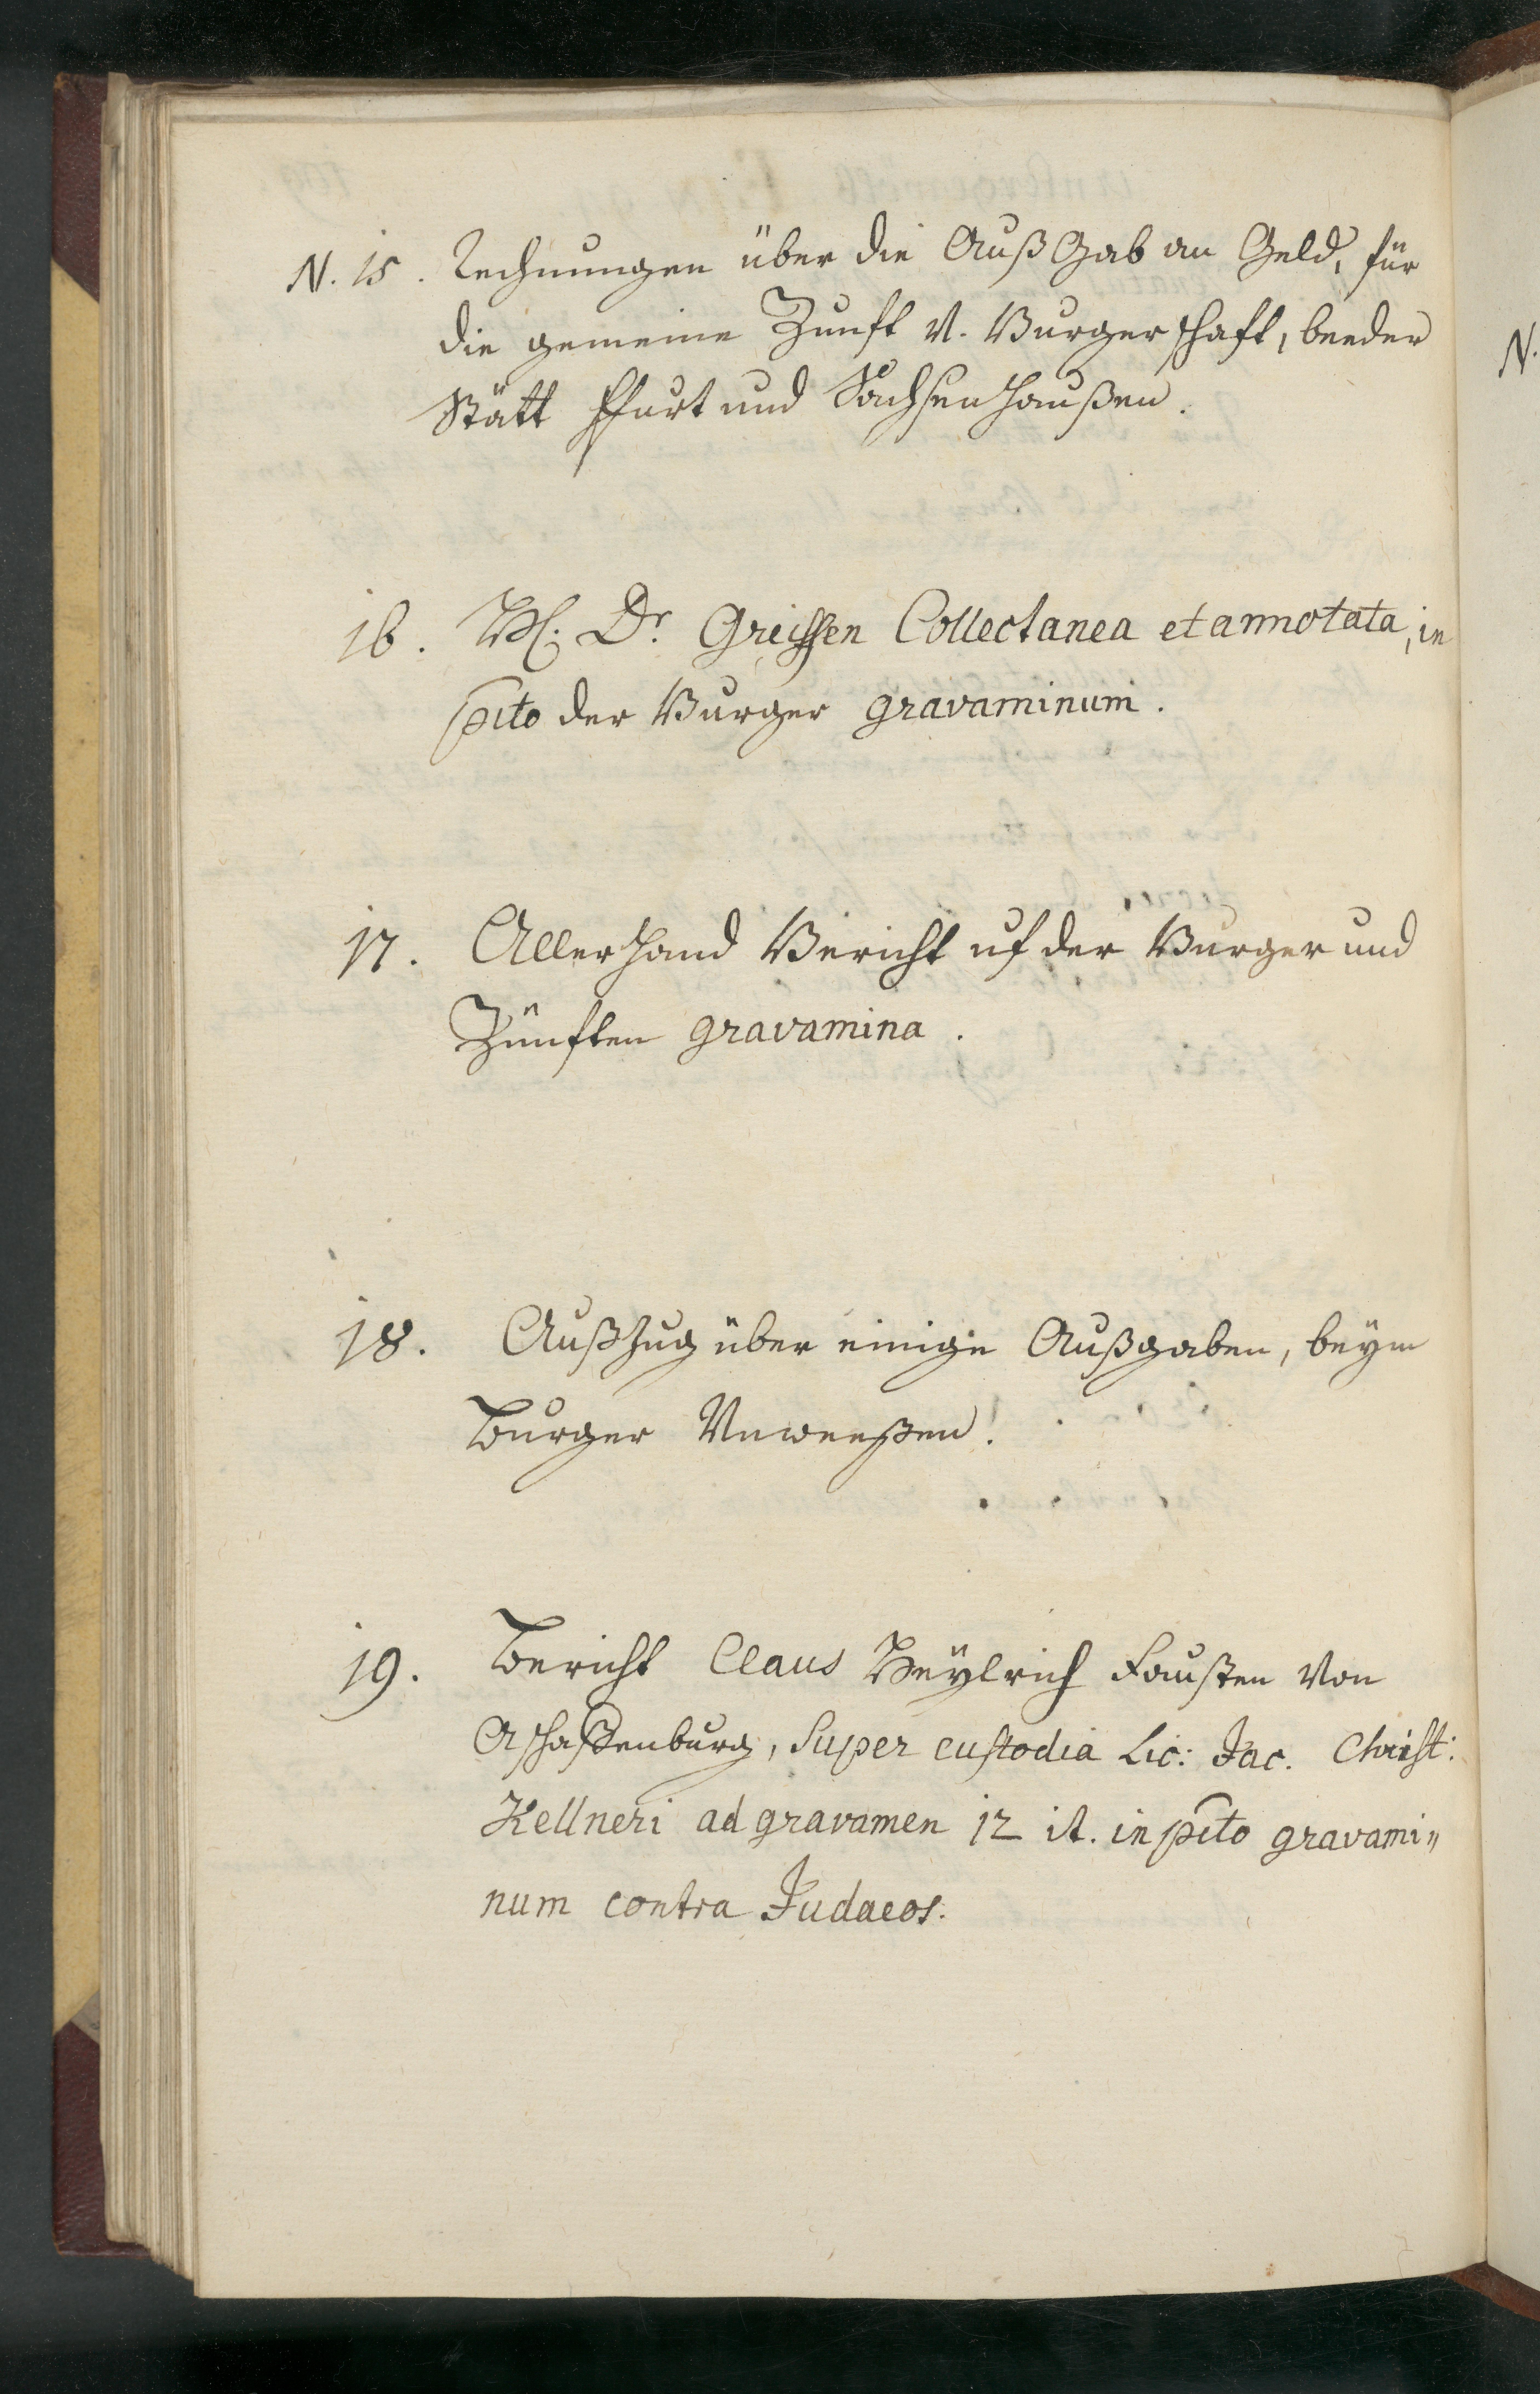 N. 15. Rechnungen über die Außgab an Geld, für
die gemeine Zunft v. Burgerschaft, beeder
Stätt Ffurt und Sachsenhaußen.
16. H. Dr. Greissen Collectanea et annotata, in
pcto der Burger gravaminum.
17. Allerhand Bericht uf der Burger und
Zünften gravamina.
18. Außzug über einige Außgaben, beÿm
Burger Unweeßen.
19. Bericht Claus Heÿlrich Fausten von
Aschaffenburg, super custodia Lic: Jac. Christ:
Kellneri ad gravamen 12 it. in pcto gravami„
num contra Judaeos.
N.